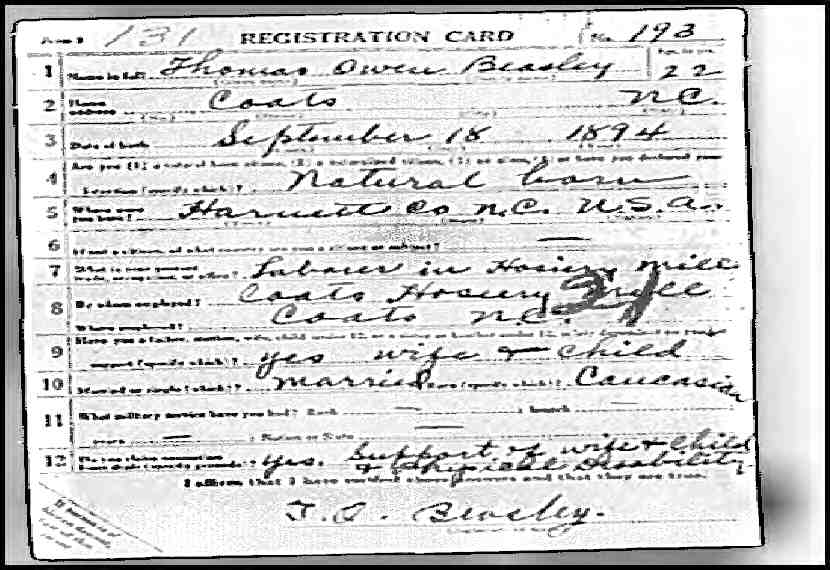 131 REGISTRATION CARD No. 193
1 Name in full Thomas Owen Beasley Age, in yrs. 22
2 Home address Coats N.C.
3 Date of birth September 18 1894
Are you (1) a natural born citizen, (2) a naturalized citizen, (3) an alien, (4) or have you declared your
4 intention (specify which)? Natural born
5 Where were you born? Harnett Co N.C. U.S.A.
6 If not a citizen, of what country are you a citizen or subject? —
7 What is your present trade, occupation, or office? Laborer in Hosiery mill
8 By whom employed? Coats Hosiery Mill
Where employed? Coats N.C.
9 Have you a father, mother, wife, child under 12, or a sister or brother under 12, solely dependent on you for
support (specify which)? yes wife + child
10 Married or single (which)? Married Race (specify which)? Caucasian
11 What military service have you had? Rank — ; branch —
years — ; Nation or State —
12 Do you claim exemption from draft (specify grounds)? yes. Support of wife + child
+ Physical Disability
I affirm that I have verified above answers and that they are true.
T. O. Beasley.